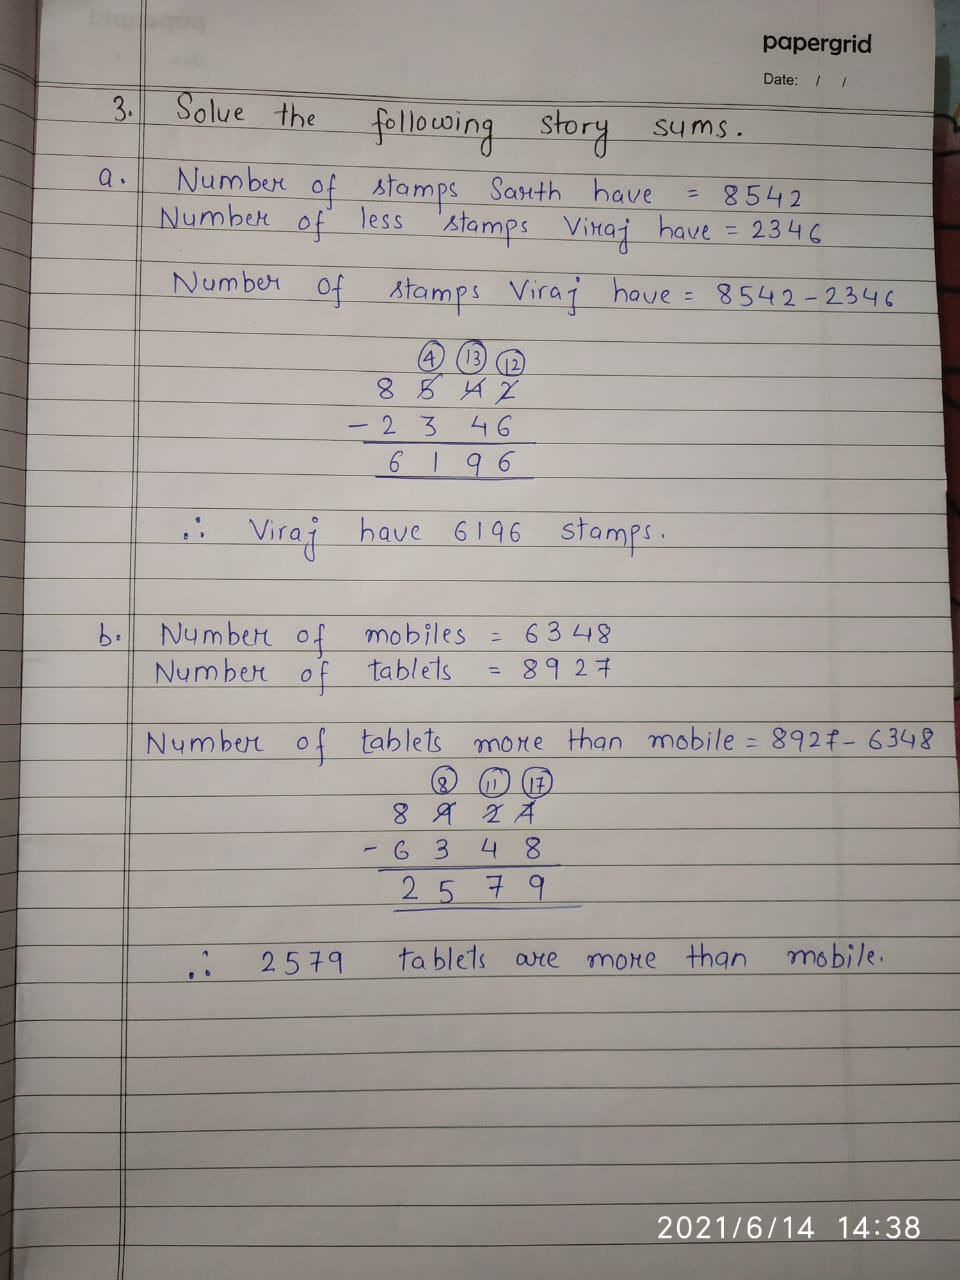 papergrid
Date: / /
3. Solve the following story sums.
a. Number of stamps Sarth have = 8542
Number of less stamps Viraj have = 2346
Number of stamps Viraj have = 8542-2346
4 13 12
8 5 4 2
- 2 3 4 6
6 1 9 6
∴ Viraj have 6196 stamps.
b. Number of mobiles = 6348
Number of tablets = 8927
Number of tablets more than mobile = 8927-6348
8 11 17
8 9 2 7
- 6 3 4 8
2 5 7 9
∴ 2579 tablets are more than mobile.
2021/6/14 14:38